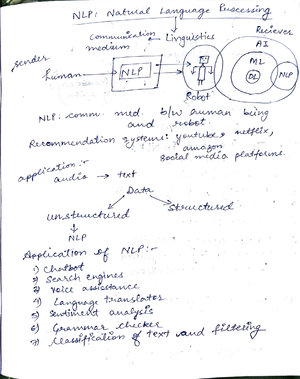 NLP: Natural Language Processing
Communication medium
Linguistics
Reciever
sender
human
NLP
Robot
AI
ML
DL
NLP
NLP: comm. med. b/w human being
and robot.
Recommendation systems: youtube, netflix,
amazon
social media platforms.
application:-
audio → text
Data
Unstructured
Structured
NLP
Application of NLP:-
1) Chatbot
2) Search engines
3) Voice assistance
4) Language translator
5) Sentiment analysis
6) Grammar checker
7) Classification of text and filtering